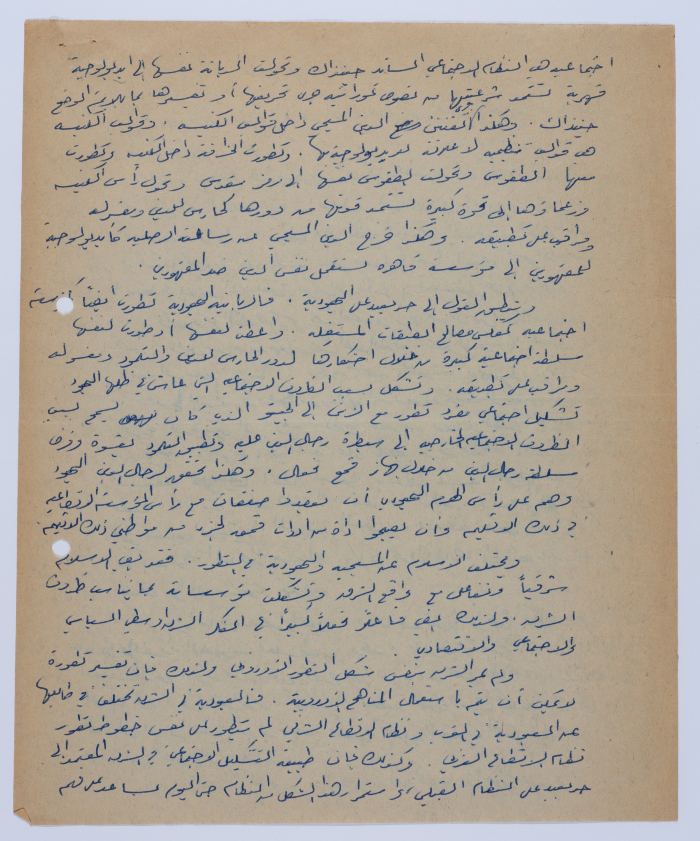 اجتماعية هي النظام الاجتماعي السائد حينذاك وتحولت الديانة نفسها إلى ايديولوجية
قهرية تستمد شرعيتها من نصوص توراتية جرى تحريفها أو تفسيرها بما يلائم الوضع
حينذاك . وهكذا الدين المسيحي داخل قوالب الكنيسة . وقوالب الكنيسة
هي قوالب تنظيمية لا علاقة للايديولوجية بها . وتطورت الخرافة داخل الكنيسة وتطورت
معها الطقوس وتحولت الطقوس نفسها إلى رمز مقدس وتحول رأس الكنيسة
وزعماؤها إلى قوة كبيرة تستمد قوتها من دورها كحارس للدين ومفسر له
ومراقب على تطبيقه . وهكذا خرج الدين المسيحي عن رسالته الأصلية كأيديولوجية
للمقهورين إلى مؤسسة قاهرة تستعمل نفس الدين ضد المقهورين .
وينطبق القول إلى حد بعيد على اليهودية . فالديانة اليهودية تطورت أيضاً كمؤسسة
اجتماعية تعكس مصالح الطبقات المستغلة . واعطت لنفسها أو طورت لنفسها
سلطة اجتماعية كبيرة من خلال احتكارها لدور الحارس للدين والتلمود ومفسر له
ومراقب على تطبيقه . وتشكل بسبب الظروف الاجتماعية التي عاش في ظلها اليهود
تشكيل اجتماعي مفرد تطور مع الزمن إلى الجيتو الذي كان يسمح بسبب
الظروف الاجتماعية الخارجية إلى سيطرة رجال الدين عليه وتطبيق التلمود بقسوة وفرض
سلطة رجال الدين من خلال جهاز قمع فعال . وهكذا تحقق لرجال الدين اليهود
وهم على رأس الهرم اليهودي أن يعقدوا صفقات مع رأس المؤسسة الاقطاعية
في ذلك الاقليم وأن يصبحوا أداة من أدوات قمعه لجزء من مواطني ذلك الاقليم
ويختلف الاسلام عن المسيحية واليهودية في التطور . فقد بقي الاسلام
شرقياً وتفاعل مع واقع الشرق وتشكلت مؤسساته بما يناسب ظروف
الشرق . ولذلك بقي فاعلاً كبيراً في الفكر الشرق أوسطي السياسي
والاجتماعي والاقتصادي .
ولم يمر الشرق بنفس شكل التطور الأوروبي ولذلك فإن تفسير تطوره
لا يمكن أن يتم باستعمال المناهج الأوروبية . فالعبودية في الشرق تختلف في طابعها
عن العبودية في الغرب ونظام الاقطاع الشرقي لم يتطور على نفس خطوط تطور
نظام الاقطاع الغربي . وكذلك فإن طبيعة التشكيل الاجتماعي في الشرق المعتمد إلى
حد بعيد على النظام القبلي واستمرار هذا الشكل من النظام حتى اليوم يساعد على فهم